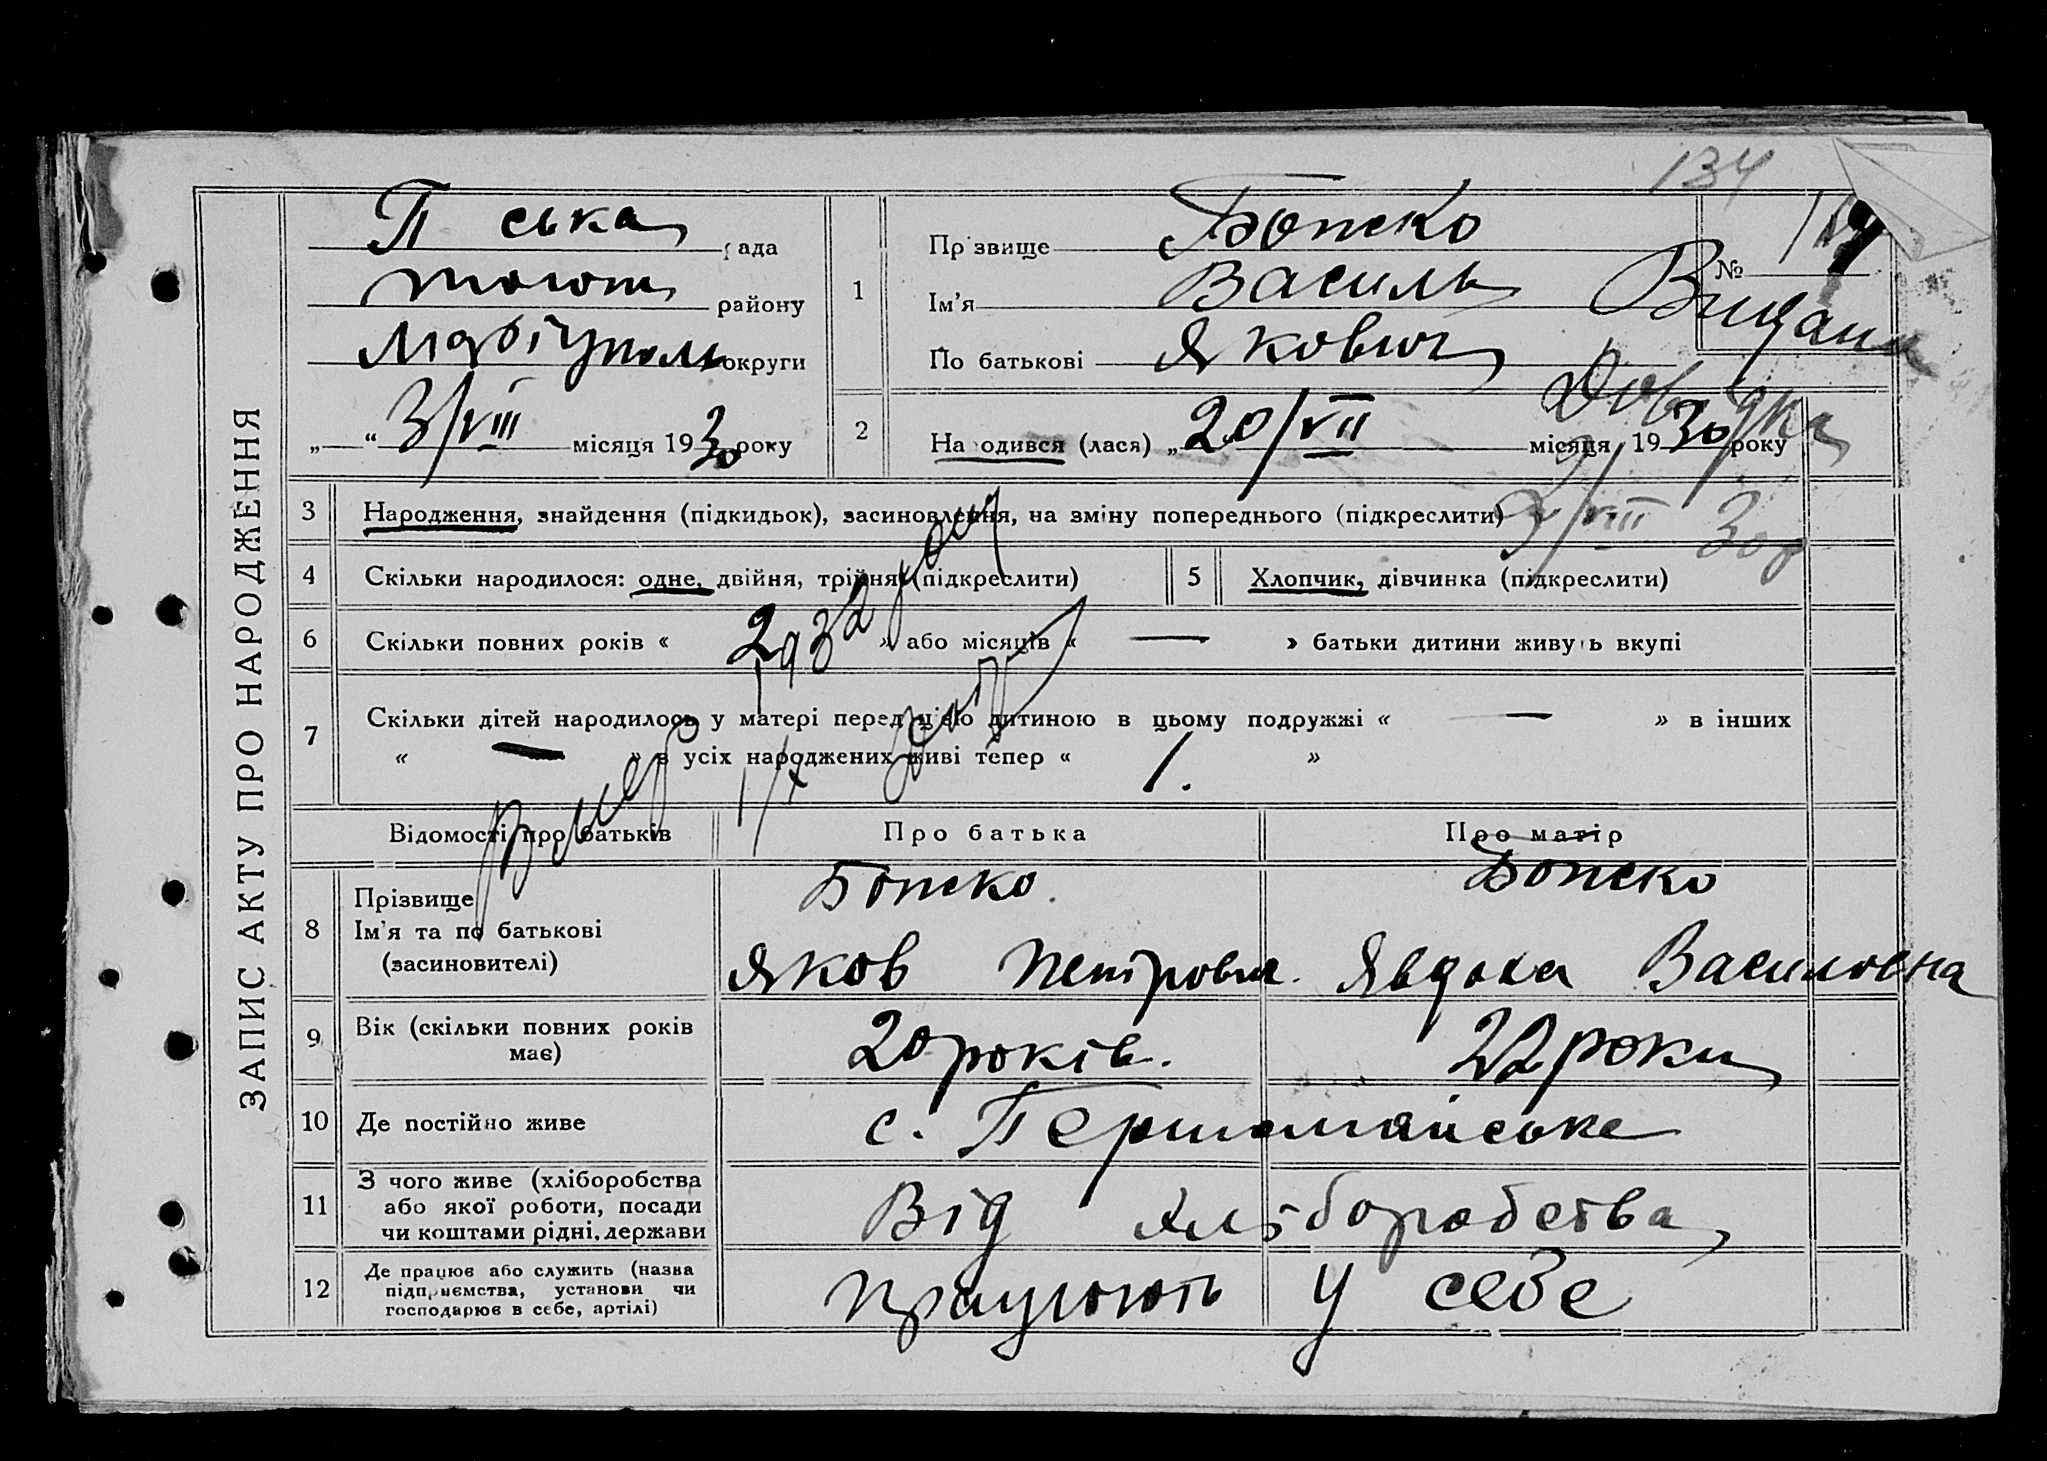 134
ЗАПИС АКТУ ПРО НАРОДЖЕННЯ
П ська рада
району
Маріуполь округи
„ “ 3/VIII місяця 1930 року
1
Прізвище Божко
Ім’я Василь
По батькові Якович
№
Видана
Довідка
3/VIII 30р
2
Народився (лася) „ 20/VII місяця 1930 року
3
Народження, знайдення (підкидьок), засиновлення, на зміну попереднього (підкреслити)
4
Скільки народилося: одне, двійня, трійня (підкреслити)
5
Хлопчик, дівчинка (підкреслити)
6
Скільки повних років « 2 » або місяців « — » батьки дитини живуть вкупі
7
Скільки дітей народилось у матері перед цією дитиною в цьому подружжі « — » в інших
« — » в усіх народжених живі тепер « 1. »
Вмер 1/X 1932 року
Відомості про батьків
Про батька
Про матір
8
Прізвище
Ім’я та по батькові
(засиновителі)
Божко
Яков Петрович
Божко
Явдоха Василовна
9
Вік (скільки повних років
має)
20 років.
22 роки
10
Де постійно живе
с. Першемайське
11
З чого живе (хліборобства
або якої роботи, посади
чи коштами рідні, держави
Від хліборобства
12
Де працює або служить (назва
підприємства, установи чи
господарює в себе, артілі)
працюють у себе